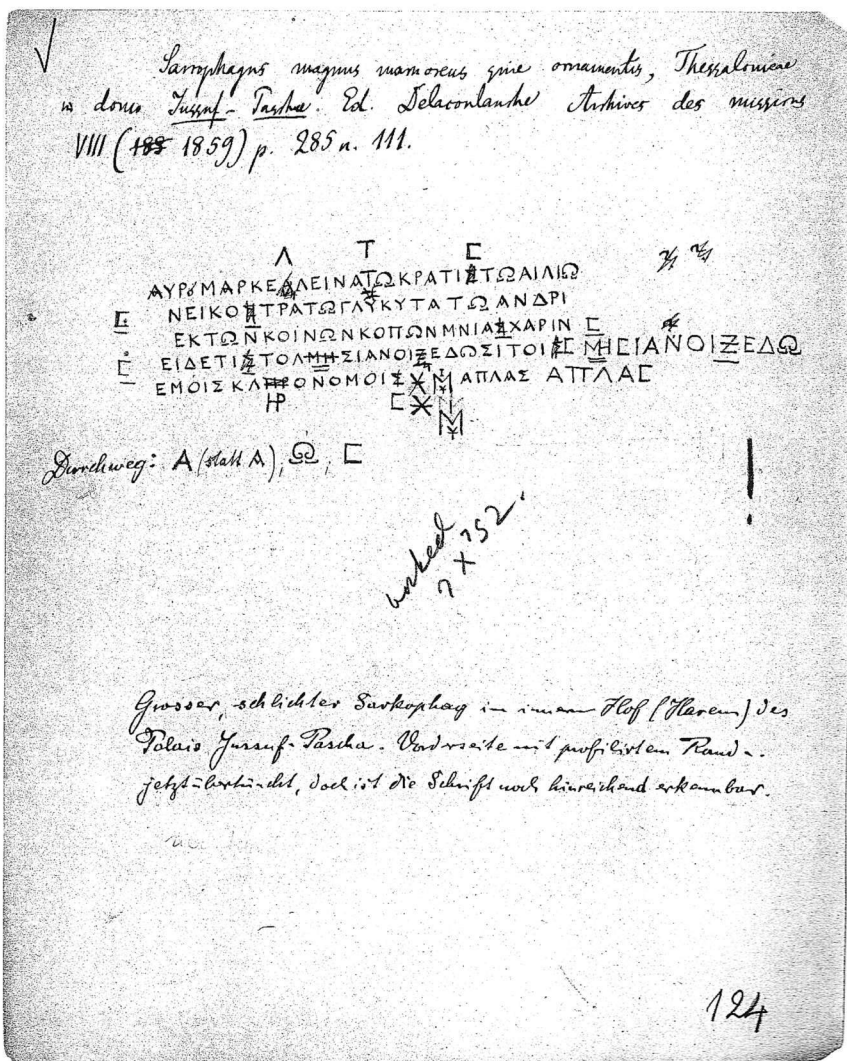 Sarcophagus magnus marmoreus sine ornamentis, Thessalonicae
in domo Jussuf-Paschae. Ed. Delacoulanche Archives des missions
VIII (188 1859) p. 285 n. 111.
Λ Τ Ϲ
ΑΥΡȣΜΑΡΚΕΛΛΕΙΝΑΤΩΚΡΑΤΙΣΤΩΑΙΛΙΩ
Ϲ ΝΕΙΚΟΣΤΡΑΤΩΓΛΥΚΥΤΑΤΩ ΑΝΔΡΙ
ΕΚΤΩΝΚΟΙΝΩΝΚΟΠΩΝΜΝΙΑΣΧΑΡΙΝ Ϲ
Ϲ ΕΙΔΕΤΙΣΤΟΛΜΗΣΙΑΝΟΙΞΕΔΩΣΙΤΟΙΣ ΜΗϹΙΑΝΟΙΞΕΔΩ
ΕΜΟΙΣ ΚΛΗΡΟΝΟΜΟΙΣ ΑΠΛΑΣ ΑΠΛΑϹ
ΗΡ Ϲ
Durchweg: Α (statt Α), Ω, Ϲ
!
worked
7 X 752.
Grosser, schlichter Sarkophag im innern Hof (Harem) des
Palais Jussuf-Pascha. Vorderseite mit profilirtem Rand -.
jetzt übertüncht, doch ist die Schrift noch hinreichend erkennbar.
124